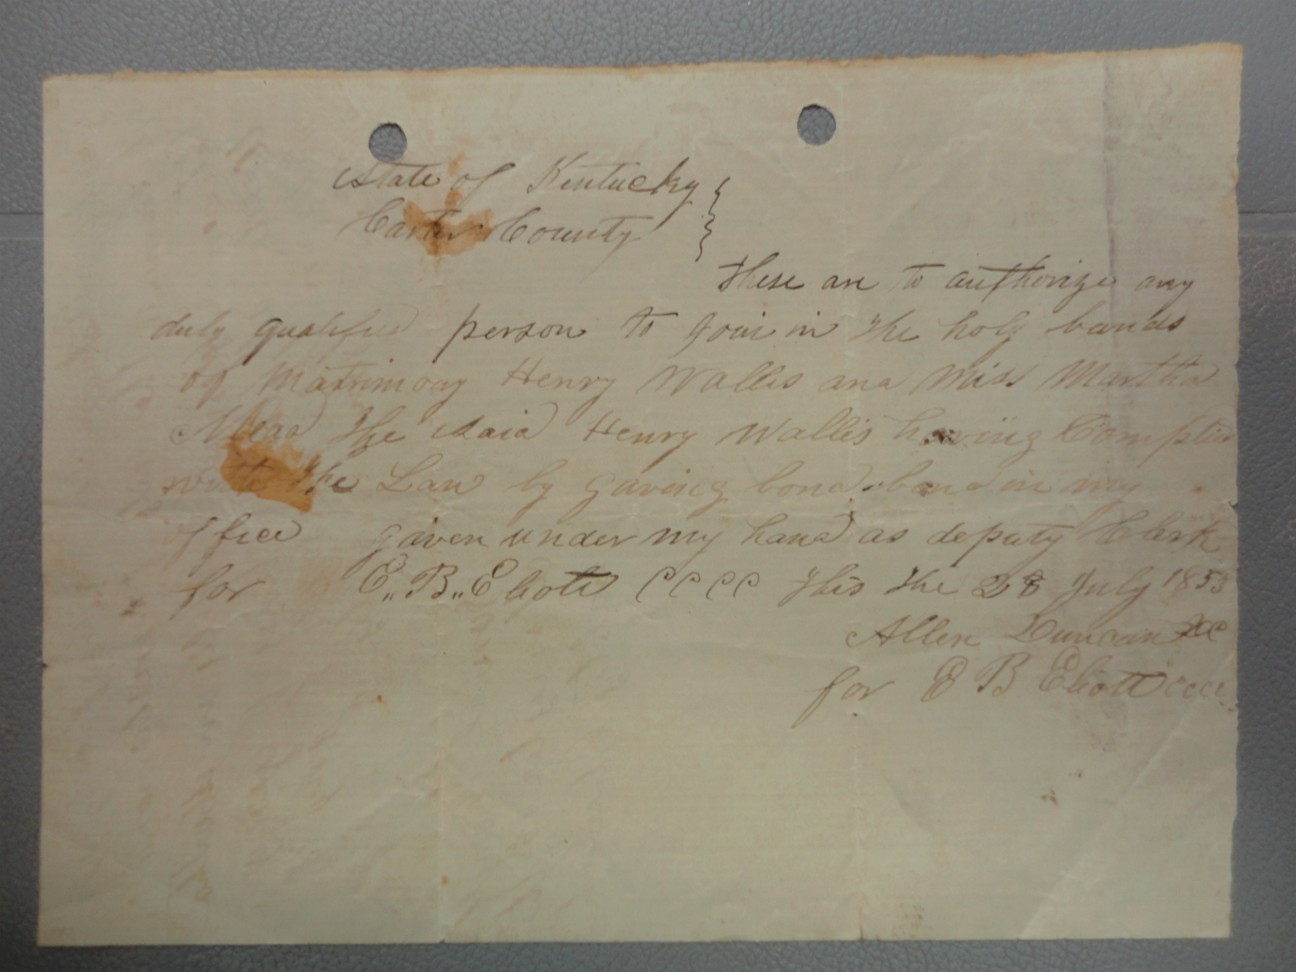 State of Kentucky }
Carter County }
These are to authorize any
duly qualified person to join in the holy bands
of Matrimony Henry Wallis and Miss Martha
Mead the said Henry Wallis having Complied
with the Law by giving bond in my
office given under my hand as deputy Clark
for E,, B,, Eliott CCCC this the 28 July 1853
Allen Duncan DC
for E B Eliott CCCC